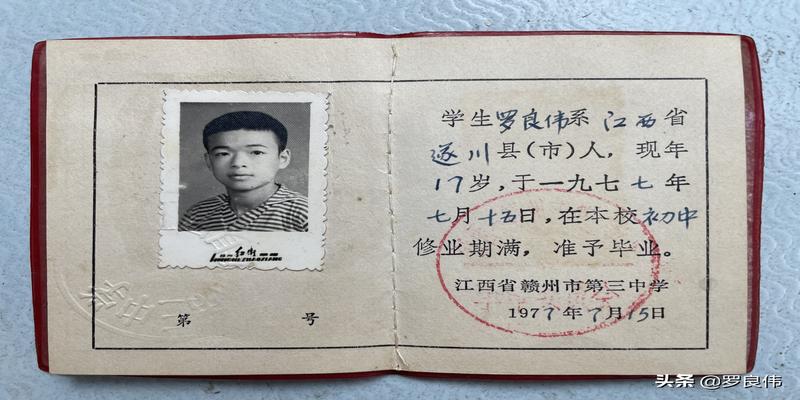 红卫
第 号
学生罗良伟系江西省
遂川县(市)人，现年
17岁，于一九七七年
七月十五日，在本校初中
修业期满，准予毕业。
江西省赣州市第三中学
1977年7月15日
头条 @罗良伟